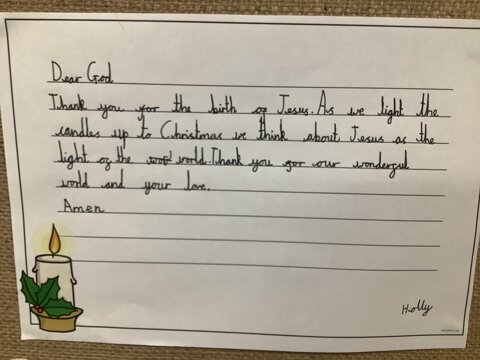 Dear God
Thank you for the birth of Jesus. As we light the
candles up to Christmas we think about Jesus as the
light of the world. Thank you for our wonderful
world and your love.
Amen
Holly